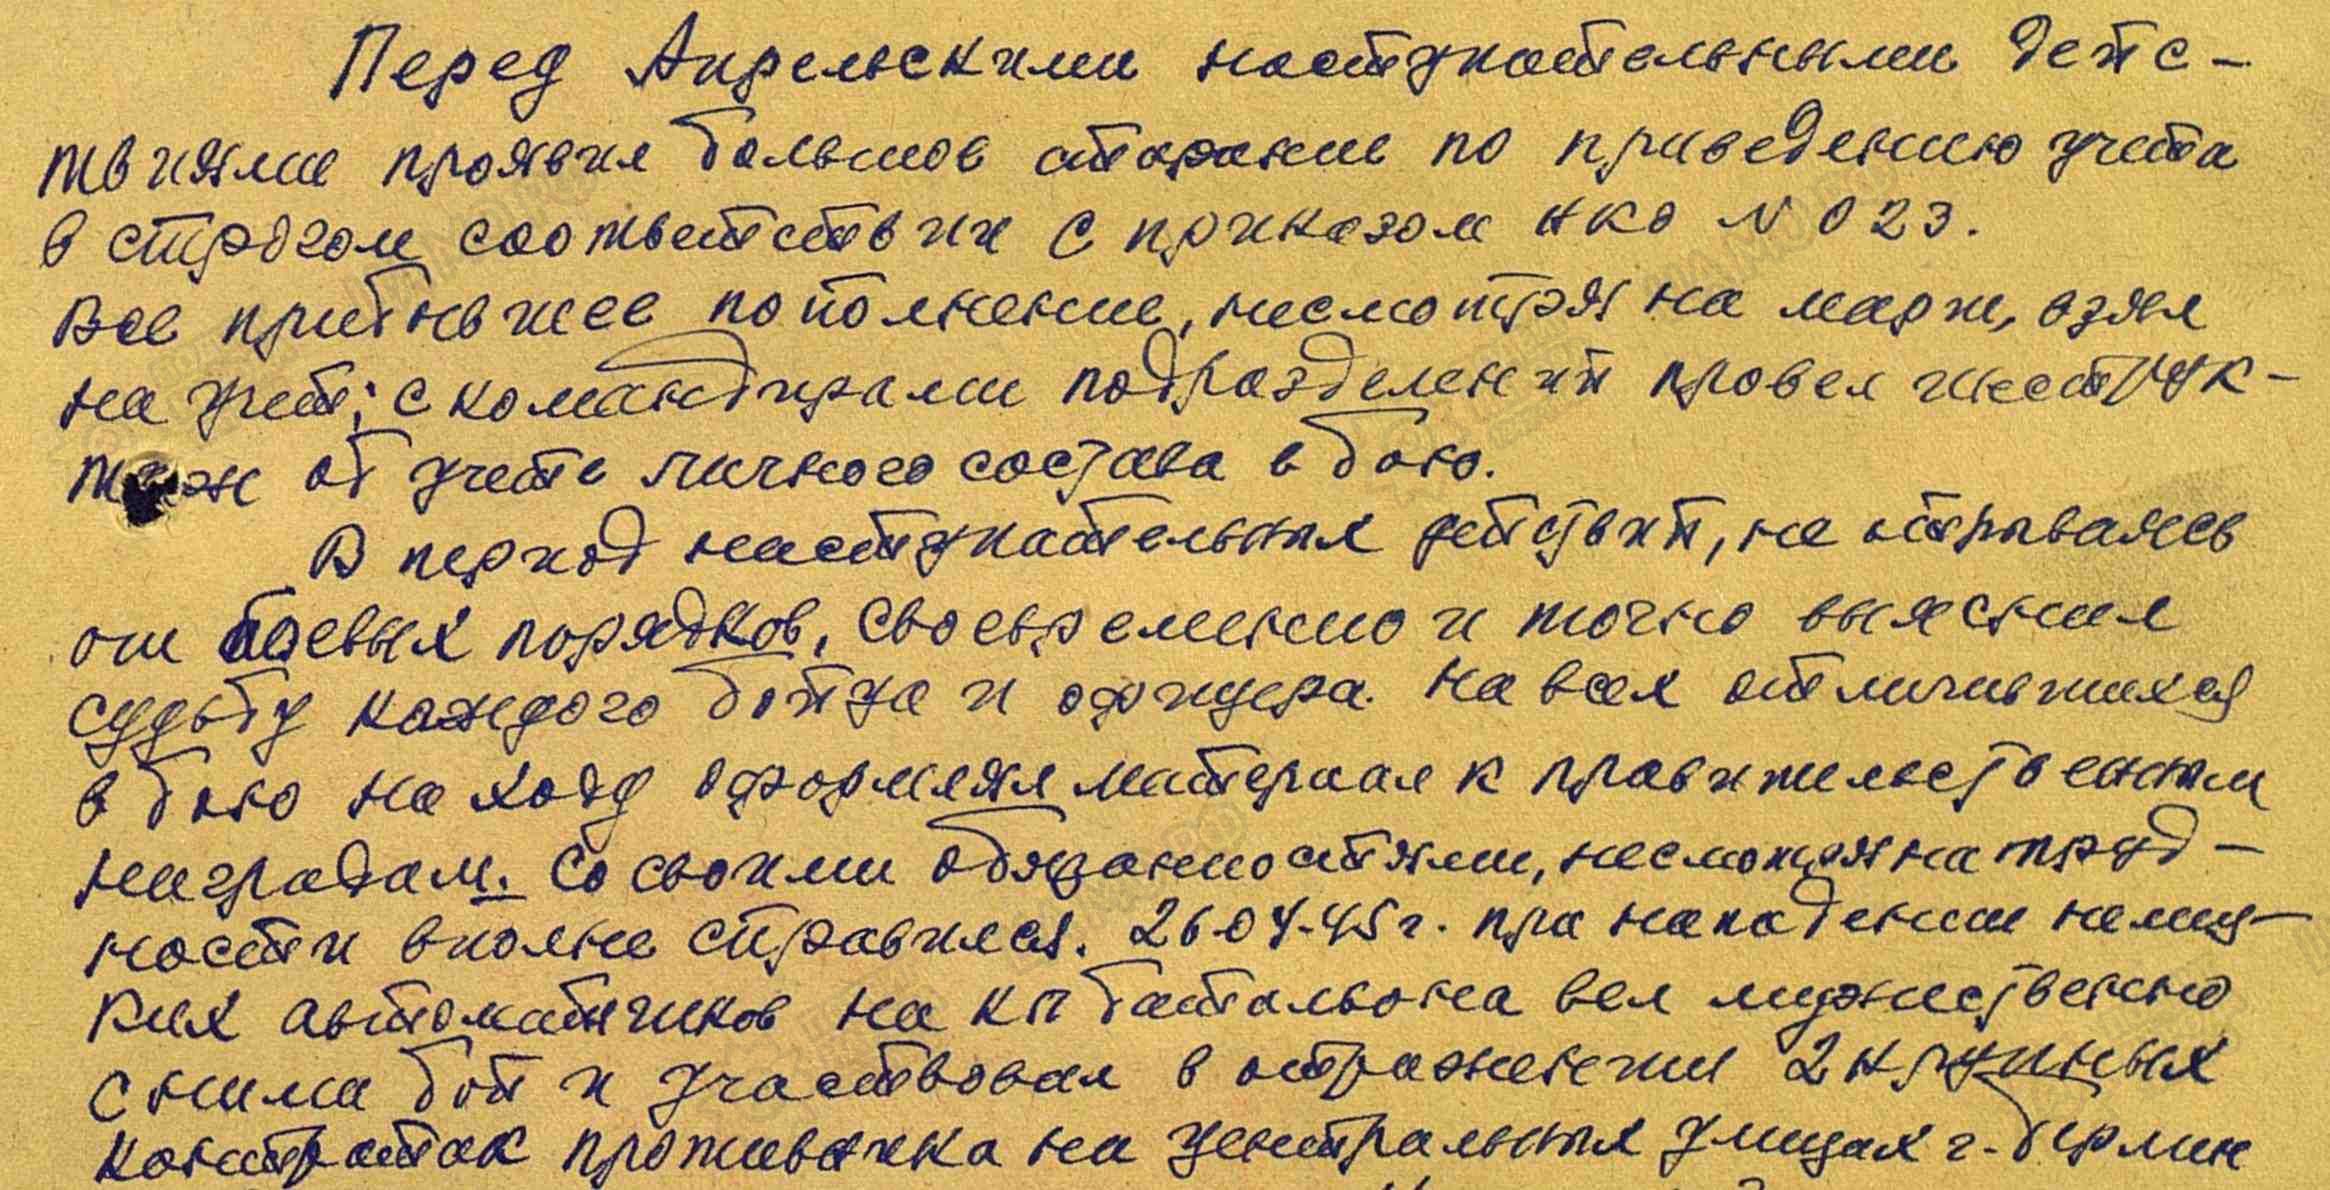 Перед Апрельскими наступательными дейс-
твиями проявил большое старание по приведению учета
в строгом соответствии с приказом НКО N 023.
Все прибывшее пополнение, несмотря на марш, взял
на учет; с командирами подразделений провел инструк-
таж об учете личного состава в бою.
В период наступательных действий, не отрываясь
от боевых порядков, своевременно и точно выяснил
судьбу каждого бойца и офицера. На всех отличившихся
в бою на ходу оформлял материал к правительственным
наградам. Со своими обязанностями, несмотря на труд-
ности вполне справился. 26.04.45г. при нападении немец-
ких автоматчиков на КП батальона вел мужественно
с ними бой и участвовал в отражении 2 крупных
контратак противника на центральных улицах г. Берлин